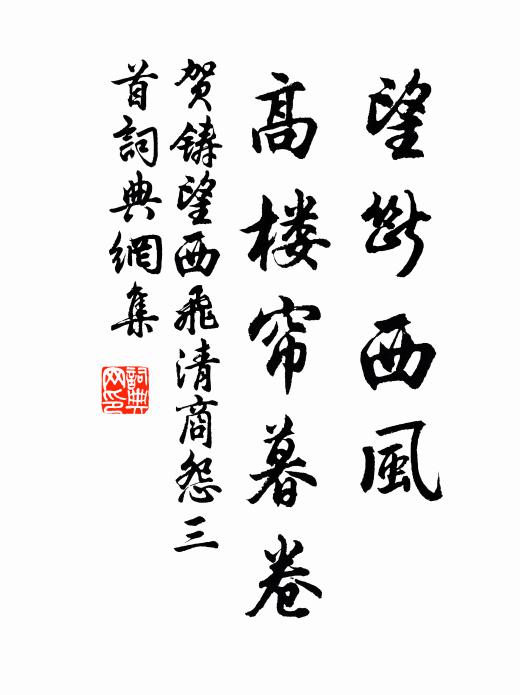 望断西風
高楼帘暮卷
贺鑄望西飛清商怨三
首詞典網集
詞典
网印